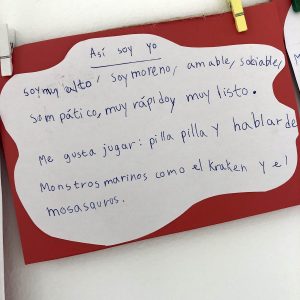 Así soy yo
soy muy alto, soy moreno, amable, sabiable,
sompático, muy rápido y muy listo.
Me gusta jugar: pilla pilla y hablar de
Monstros marinos como el Kraken y el
mosasauros.